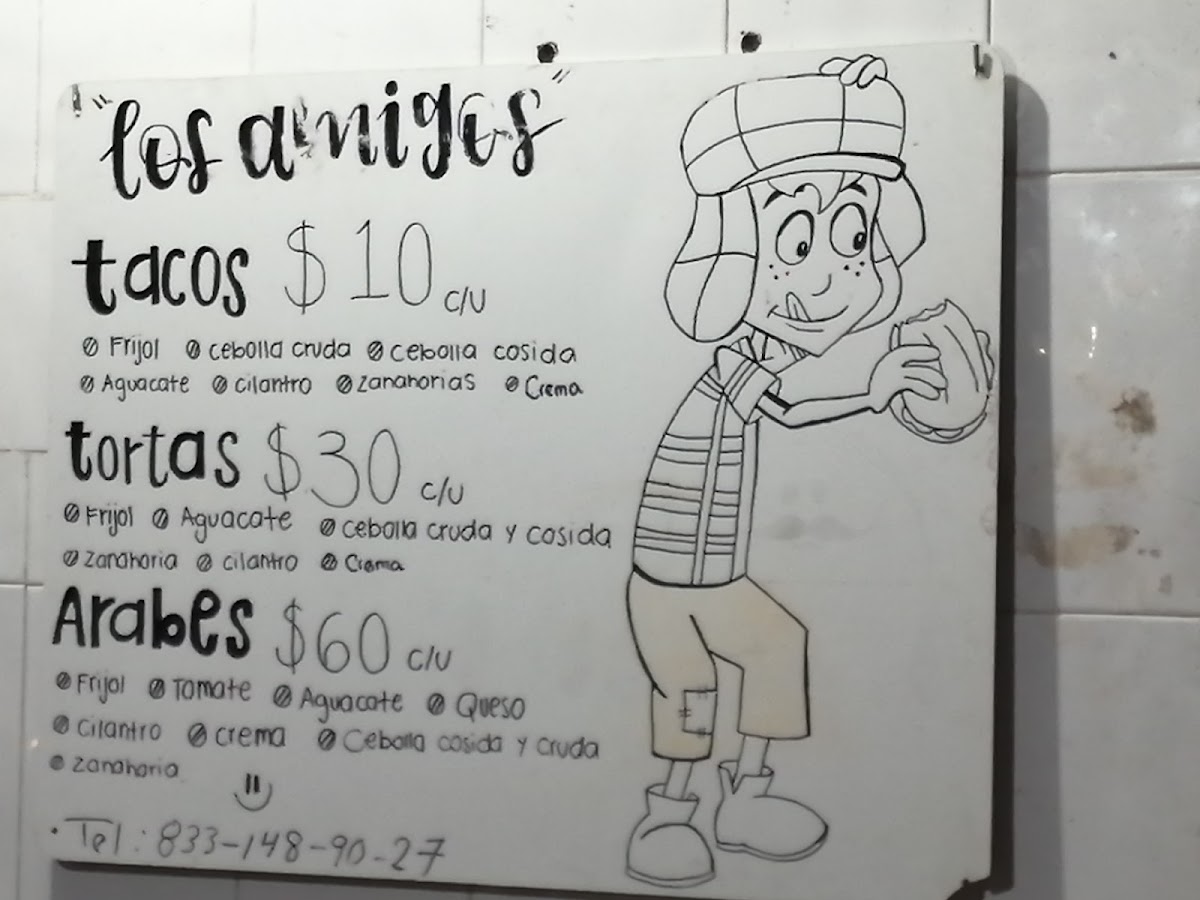 "los amigos"
tacos $10 c/u
Frijol cebolla cruda cebolla cosida
Aguacate cilantro zanahorias Crema
tortas $30 c/u
Frijol Aguacate cebolla cruda y cosida
zanahoria cilantro Crema
Arabes $60 c/u
Frijol Tomate Aguacate Queso
Cilantro crema Cebolla cosida y cruda
zanahoria
• Tel: 833-148-90-27